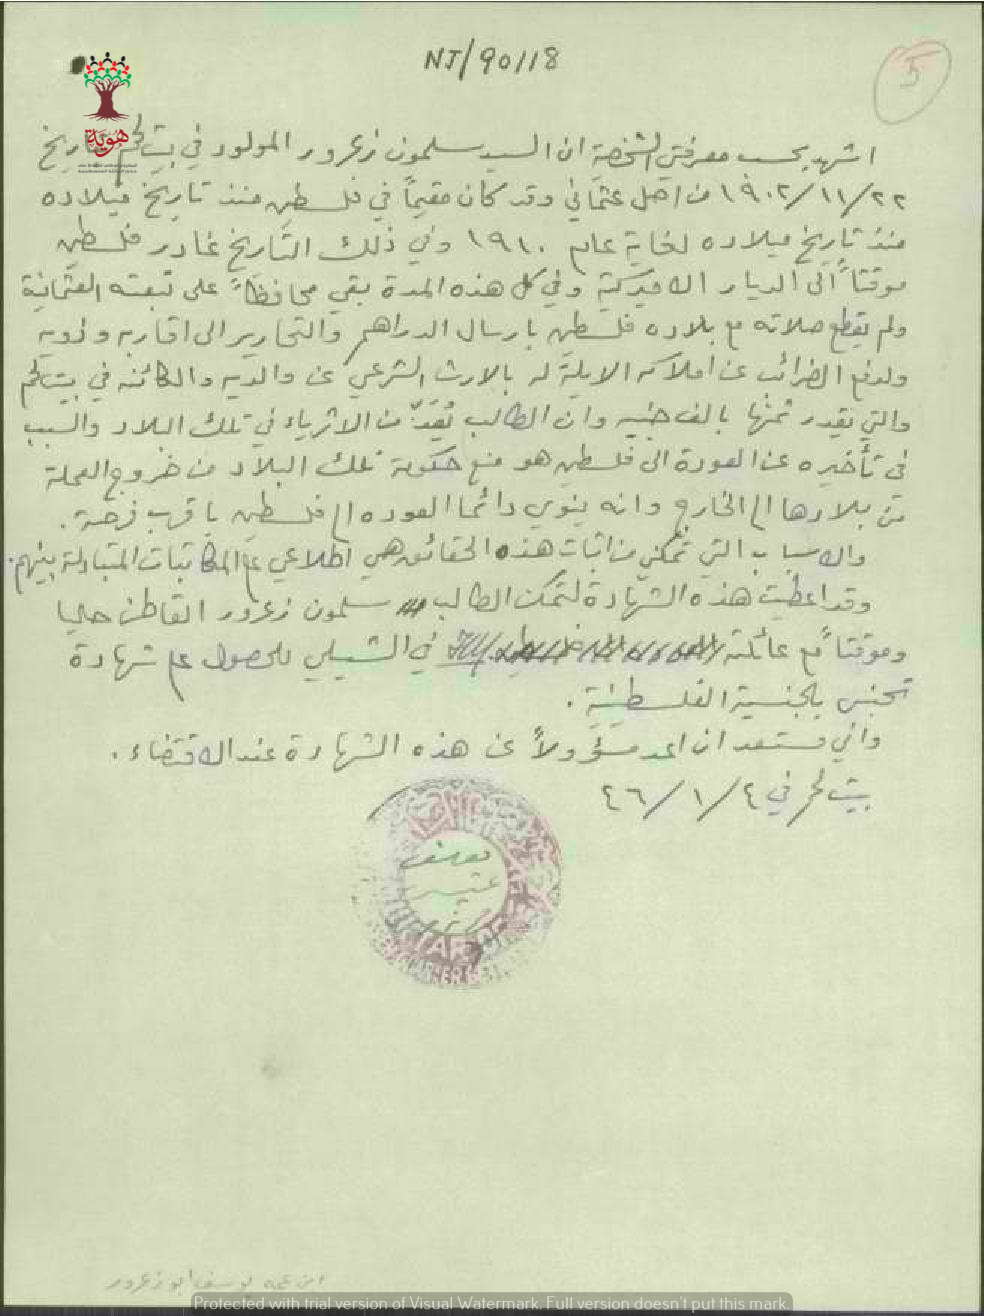 NJ/90118
5
هُوِيَّة
اشهد بحسب معرفتي الشخصية ان السيد سلمون زعرور المولود في بيت لحم بتاريخ
٢٢/١١/١٩٠٢ من اصل عثماني وقد كان مقيماً في فلسطين منذ تاريخ ميلاده
منذ تاريخ ميلاده لغاية عام ١٩١٠ وفي ذلك التاريخ غادر فلسطين
موقتاً الى الديار الاميركية وفي كل هذه المدة بقي محافظاً على تبعته العثمانية
ولم يقطع صلاته مع بلاده فلسطين بارسال الدراهم والتحارير الى اقاربه وذويه
ولدفع الضرائب عن املاكه الايلة له بالارث الشرعي عن والديه والكائنه في بيت لحم
والتي يقدر ثمنها بالف جنيه وان الطالب يُعَدّ من الاثرياء في تلك البلاد والسبب
في تأخيره عن العودة الى فلسطين هو منع حكومة تلك البلاد من خروج العملة
من بلادها الى الخارج وانه ينوي دائما العوده الى فلسطين باقرب فرصة.
والاسباب التي تمكني من اثبات هذه الحقائق هي اطلاعي على المكاتبات المتبادلة بينهم.
وقد اعطيت هذه الشهادة لتمكن الطالب سلمون زعرور القاطن حاليا
وموقتاً مع عائلته في الشيلي للحصول على شهادة
تجنس بالجنسية الفلسطينية.
واني مستعد ان اعد مسؤولاً عن هذه الشهادة عند الاقتضاء.
بيت لحم في ٤/١/٤٦
يوسف
MUKTAR OF
ابن عمه يوسف ابو زعرور
Protected with trial version of Visual Watermark. Full version doesn't put this mark.